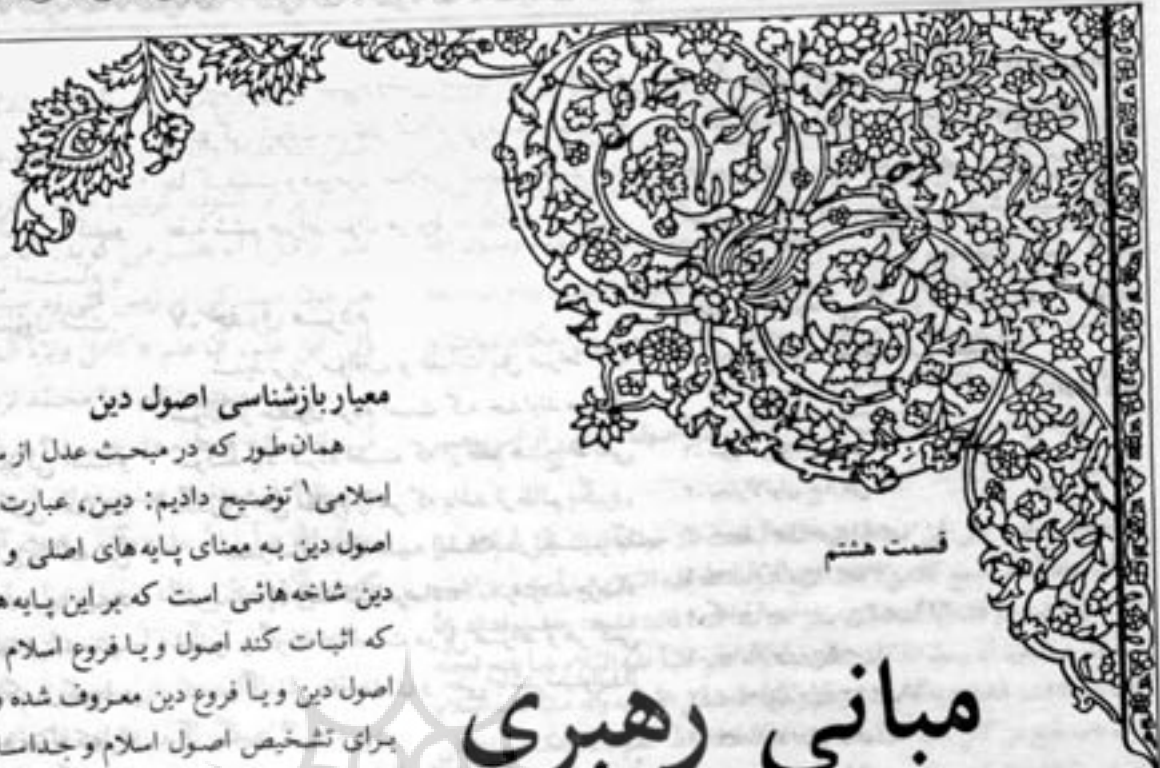 قسمت هشتم
مبانی رهبری
معیار بازشناسی اصول دین
همان‌طور که در مبحث عدل از
اسلامی۱ توضیح دادیم: دین، عبارت
اصول دین به معنای پایه‌های اصلی و
دین شاخه‌هائی است که بر این پایه‌ه
که اثبات کند اصول و یا فروع اسلام
اصول دین و یا فروع دین معروف شده
برای تشخیص اصول اسلام و جدا